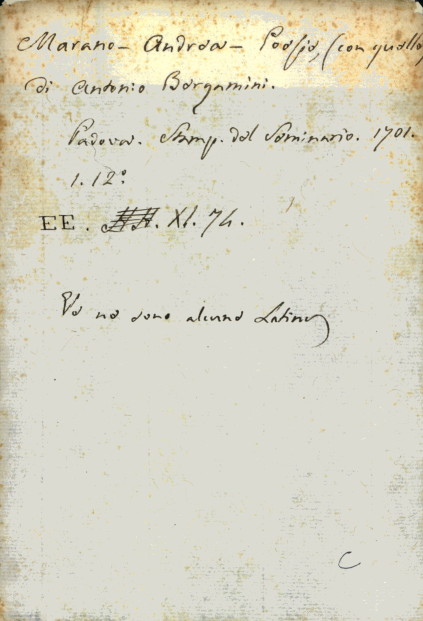 Marano - Andrea - Poesie, (con quelle
di Antonio Bergamini.
Padova. Stamp. del Seminario. 1701.
1. 12º
EE. XI. 74.
Ve ne sono alcune Latine
C